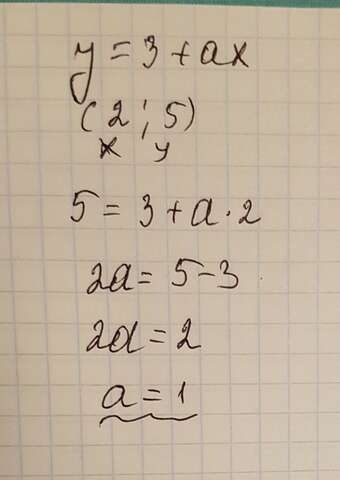 y = 3 + ax
(2 ; 5)
x y
5 = 3 + a · 2
2a = 5 - 3
2a = 2
a = 1